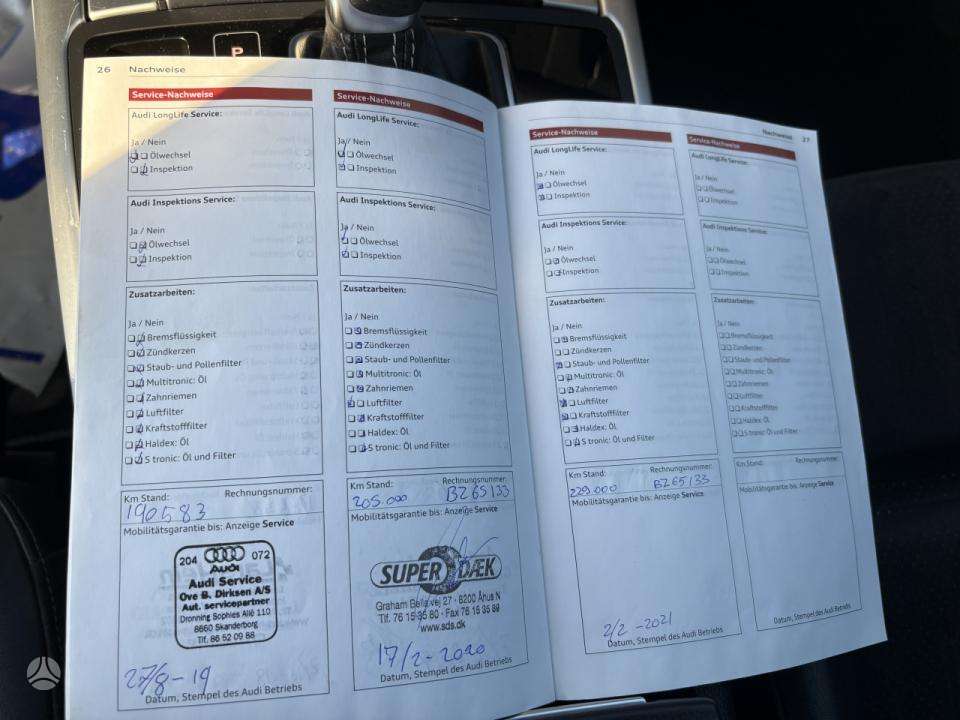 P
26 Nachweise
Service-Nachweise
Audi LongLife Service:
Ja / Nein
Ölwechsel
Inspektion
Audi Inspektions Service:
Ja / Nein
Ölwechsel
Inspektion
Zusatzarbeiten:
Ja / Nein
Bremsflüssigkeit
Zündkerzen
Staub- und Pollenfilter
Multitronic: Öl
Zahnriemen
Luftfilter
Kraftstofffilter
Haldex: Öl
S tronic: Öl und Filter
Km Stand: Rechnungsnummer:
190583
Mobilitätsgarantie bis: Anzeige Service
204 072
Audi
Audi Service
Ove B. Dirksen A/S
Aut. servicepartner
Dronning Sophies Allé 110
8660 Skanderborg
Tlf. 86 52 09 88
27/8-19
Datum, Stempel des Audi Betriebs
Service-Nachweise
Audi LongLife Service:
Ja / Nein
Ölwechsel
Inspektion
Audi Inspektions Service:
Ja / Nein
Ölwechsel
Inspektion
Zusatzarbeiten:
Ja / Nein
Bremsflüssigkeit
Zündkerzen
Staub- und Pollenfilter
Multitronic: Öl
Zahnriemen
Luftfilter
Kraftstofffilter
Haldex: Öl
S tronic: Öl und Filter
Km Stand: Rechnungsnummer:
205.000 BZ65133
Mobilitätsgarantie bis: Anzeige Service
SUPER DÆK
Graham Bells vej 27 - 8200 Århus N
Tlf. 76 15 35 80 - Fax 76 15 35 89
www.sds.dk
17/2-2020
Datum, Stempel des Audi Betriebs
Nachweise 27
Service-Nachweise
Audi LongLife Service:
Ja / Nein
Ölwechsel
Inspektion
Audi Inspektions Service:
Ja / Nein
Ölwechsel
Inspektion
Zusatzarbeiten:
Ja / Nein
Bremsflüssigkeit
Zündkerzen
Staub- und Pollenfilter
Multitronic: Öl
Zahnriemen
Luftfilter
Kraftstofffilter
Haldex: Öl
S tronic: Öl und Filter
Km Stand: Rechnungsnummer:
229.000 BZ65133
Mobilitätsgarantie bis: Anzeige Service
2/2-2021
Datum, Stempel des Audi Betriebs
Service-Nachweise
Audi LongLife Service:
Ja / Nein
Ölwechsel
Inspektion
Audi Inspektions Service:
Ja / Nein
Ölwechsel
Inspektion
Zusatzarbeiten:
Ja / Nein
Bremsflüssigkeit
Zündkerzen
Staub- und Pollenfilter
Multitronic: Öl
Zahnriemen
Luftfilter
Kraftstofffilter
Haldex: Öl
S tronic: Öl und Filter
Km Stand: Rechnungsnummer:
Mobilitätsgarantie bis: Anzeige Service
Datum, Stempel des Audi Betriebs